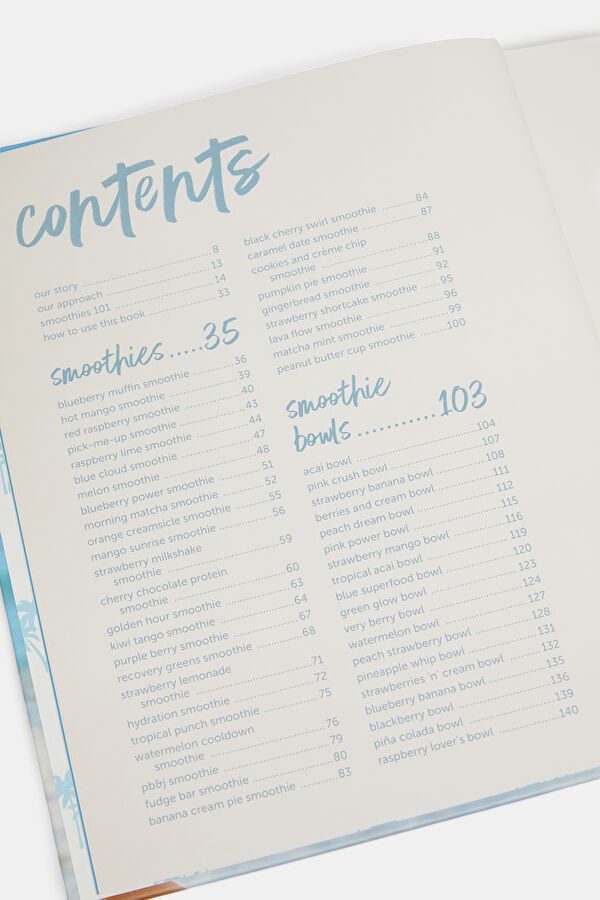 contents
our story 8
our approach 13
smoothies 101 14
how to use this book 33
smoothies.....35
blueberry muffin smoothie 36
hot mango smoothie 39
red raspberry smoothie 40
pick-me-up smoothie 43
raspberry lime smoothie 44
blue cloud smoothie 47
melon smoothie 48
blueberry power smoothie 51
morning matcha smoothie 52
orange creamsicle smoothie 55
mango sunrise smoothie 56
strawberry milkshake
smoothie 59
cherry chocolate protein
smoothie 60
golden hour smoothie 63
kiwi tango smoothie 64
purple berry smoothie 67
recovery greens smoothie 68
strawberry lemonade
smoothie 71
hydration smoothie 72
tropical punch smoothie 75
watermelon cooldown
smoothie 76
pb&j smoothie 79
fudge bar smoothie 80
banana cream pie smoothie 83
black cherry swirl smoothie 84
caramel date smoothie 87
cookies and crème chip
smoothie 88
pumpkin pie smoothie 91
gingerbread smoothie 92
strawberry shortcake smoothie 95
lava flow smoothie 96
matcha mint smoothie 99
peanut butter cup smoothie 100
smoothie
bowls...........103
acai bowl 104
pink crush bowl 107
strawberry banana bowl 108
berries and cream bowl 111
peach dream bowl 112
pink power bowl 115
strawberry mango bowl 116
tropical acai bowl 119
blue superfood bowl 120
green glow bowl 123
very berry bowl 124
watermelon bowl 127
peach strawberry bowl 128
pineapple whip bowl 131
strawberries 'n' cream bowl 132
blueberry banana bowl 135
blackberry bowl 136
piña colada bowl 139
raspberry lover's bowl 140